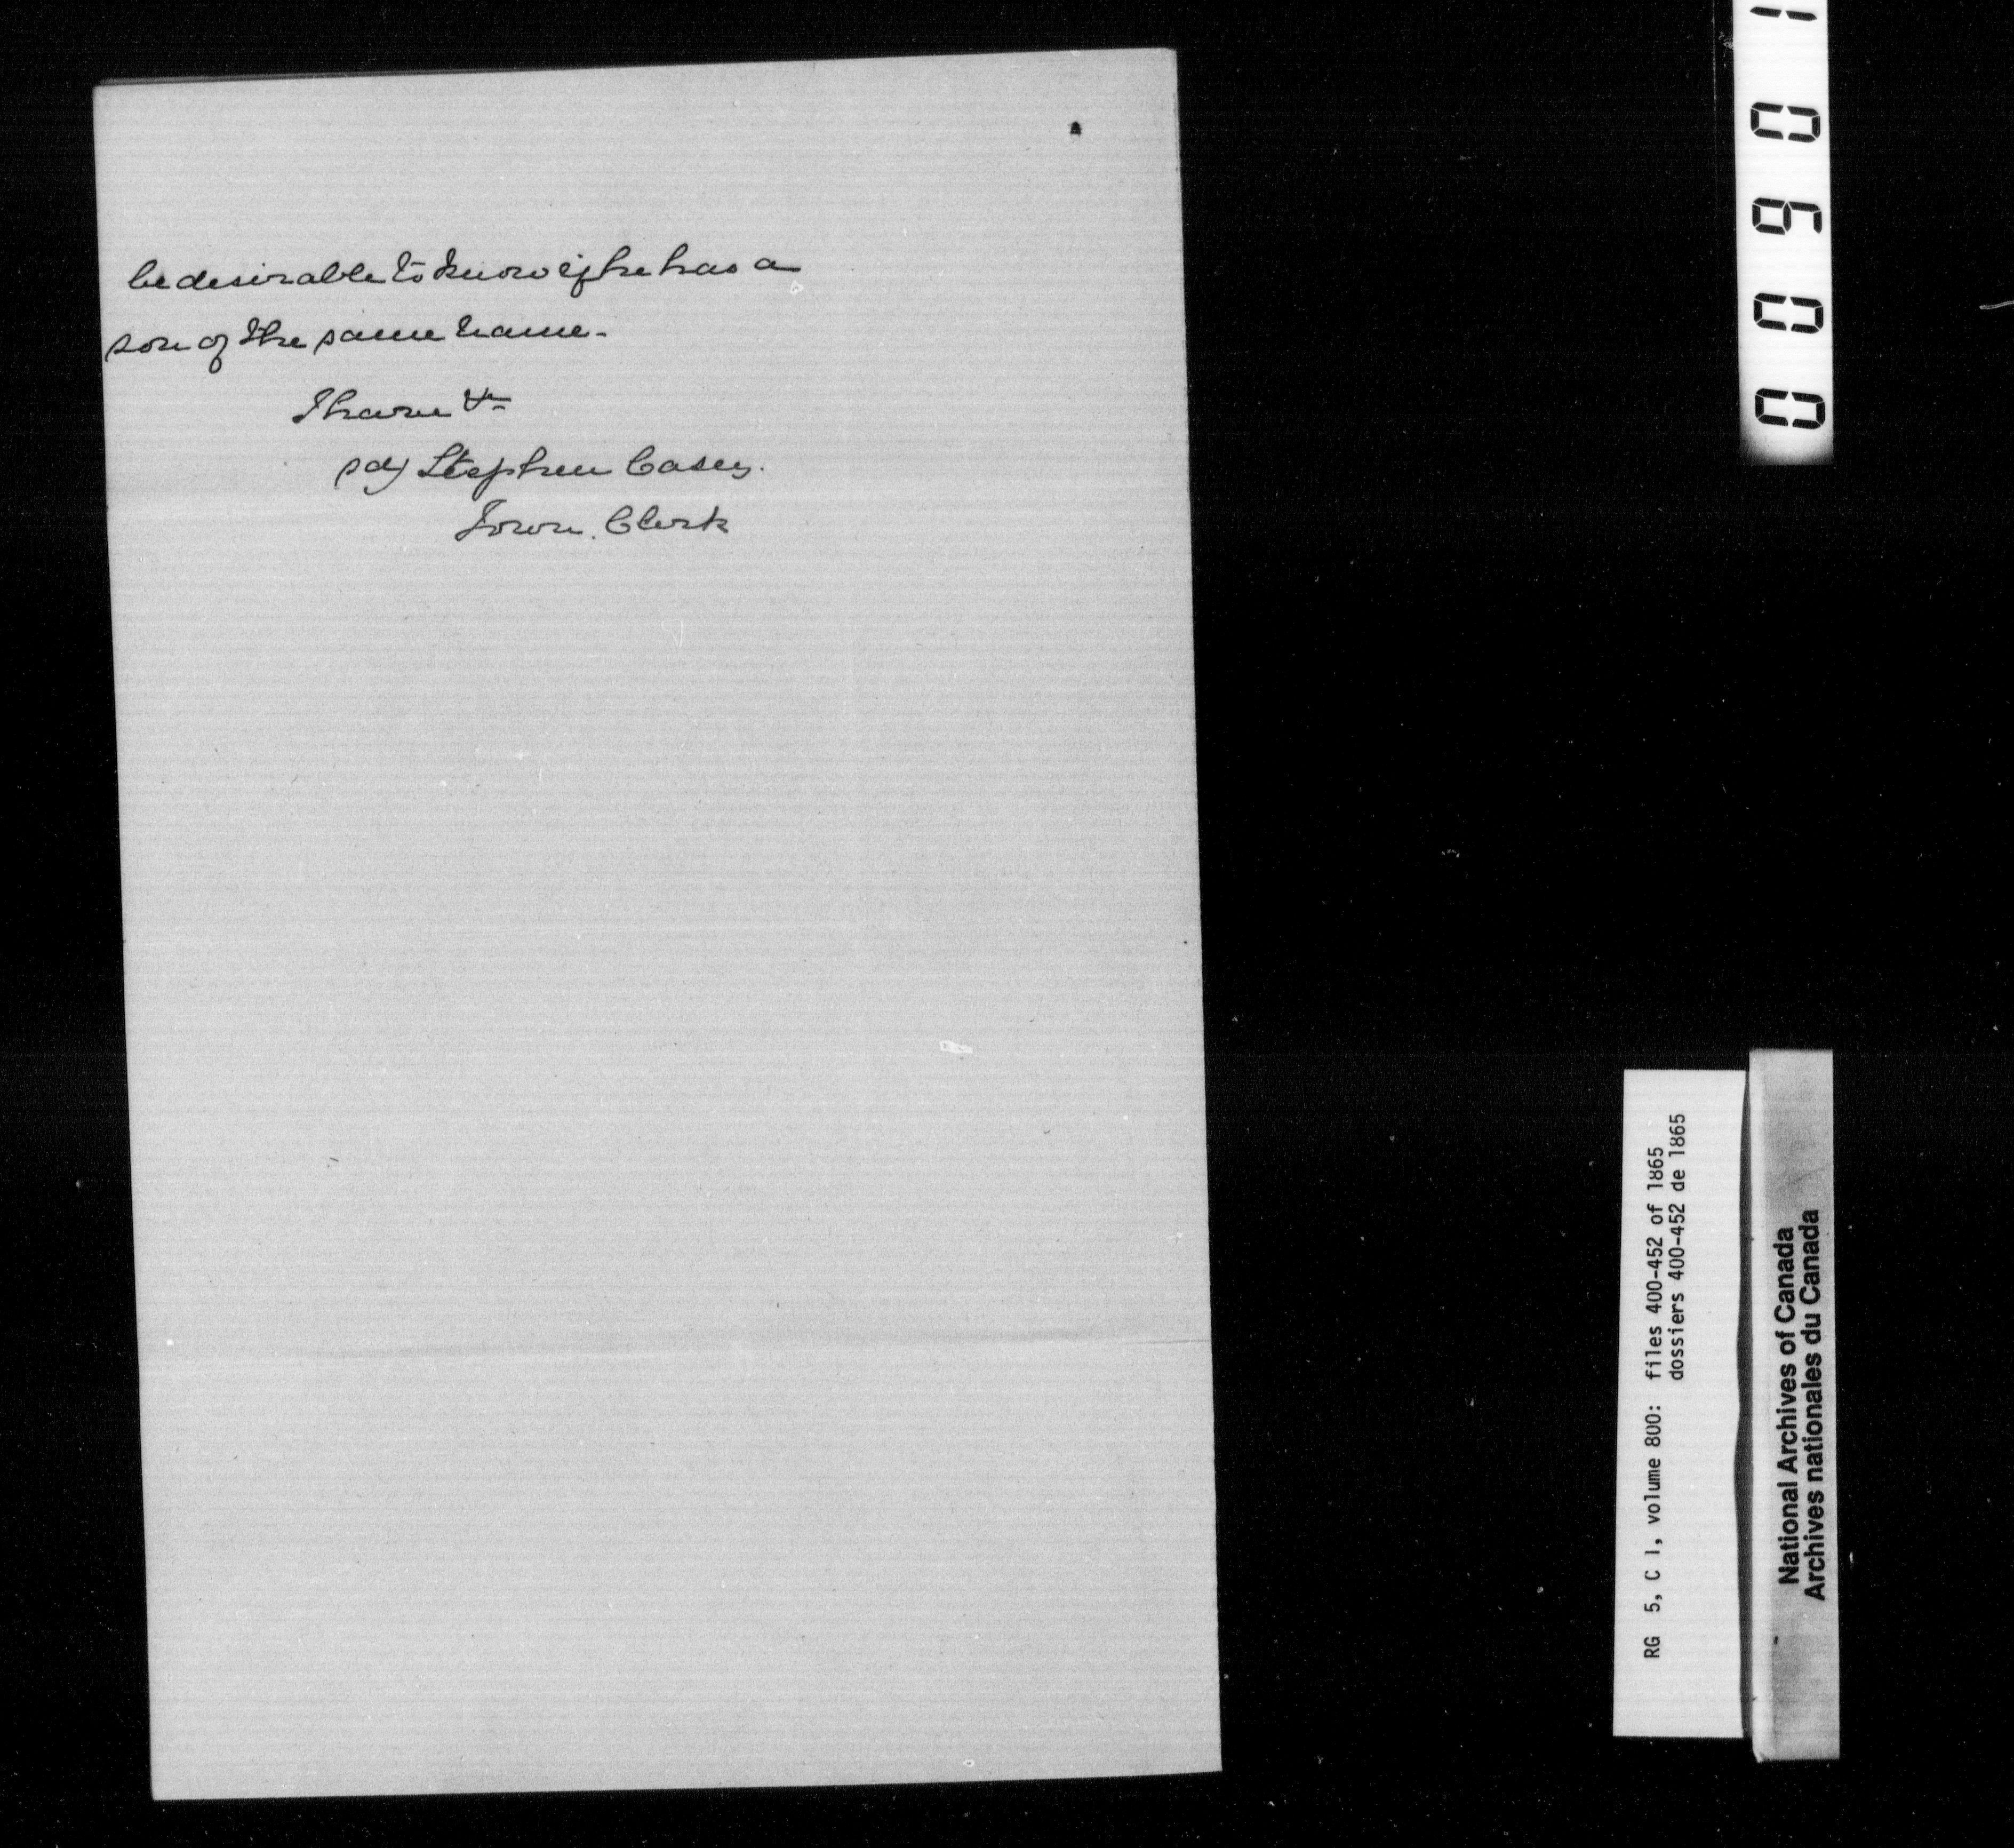 be desirable to know if he has a
son of the same name-
I have &c
sd) Stephen Casey.
Town. Clerk
00901
RG 5, C 1, volume 800: files 400-452 of 1865
dossiers 400-452 de 1865
National Archives of Canada
Archives nationales du Canada